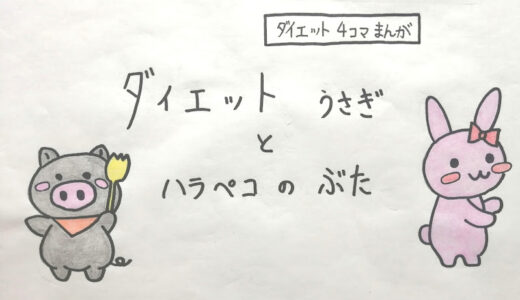 ダイエット 4コマ まんが
ダイエット うさぎ
と
ハラペコ の ぶた